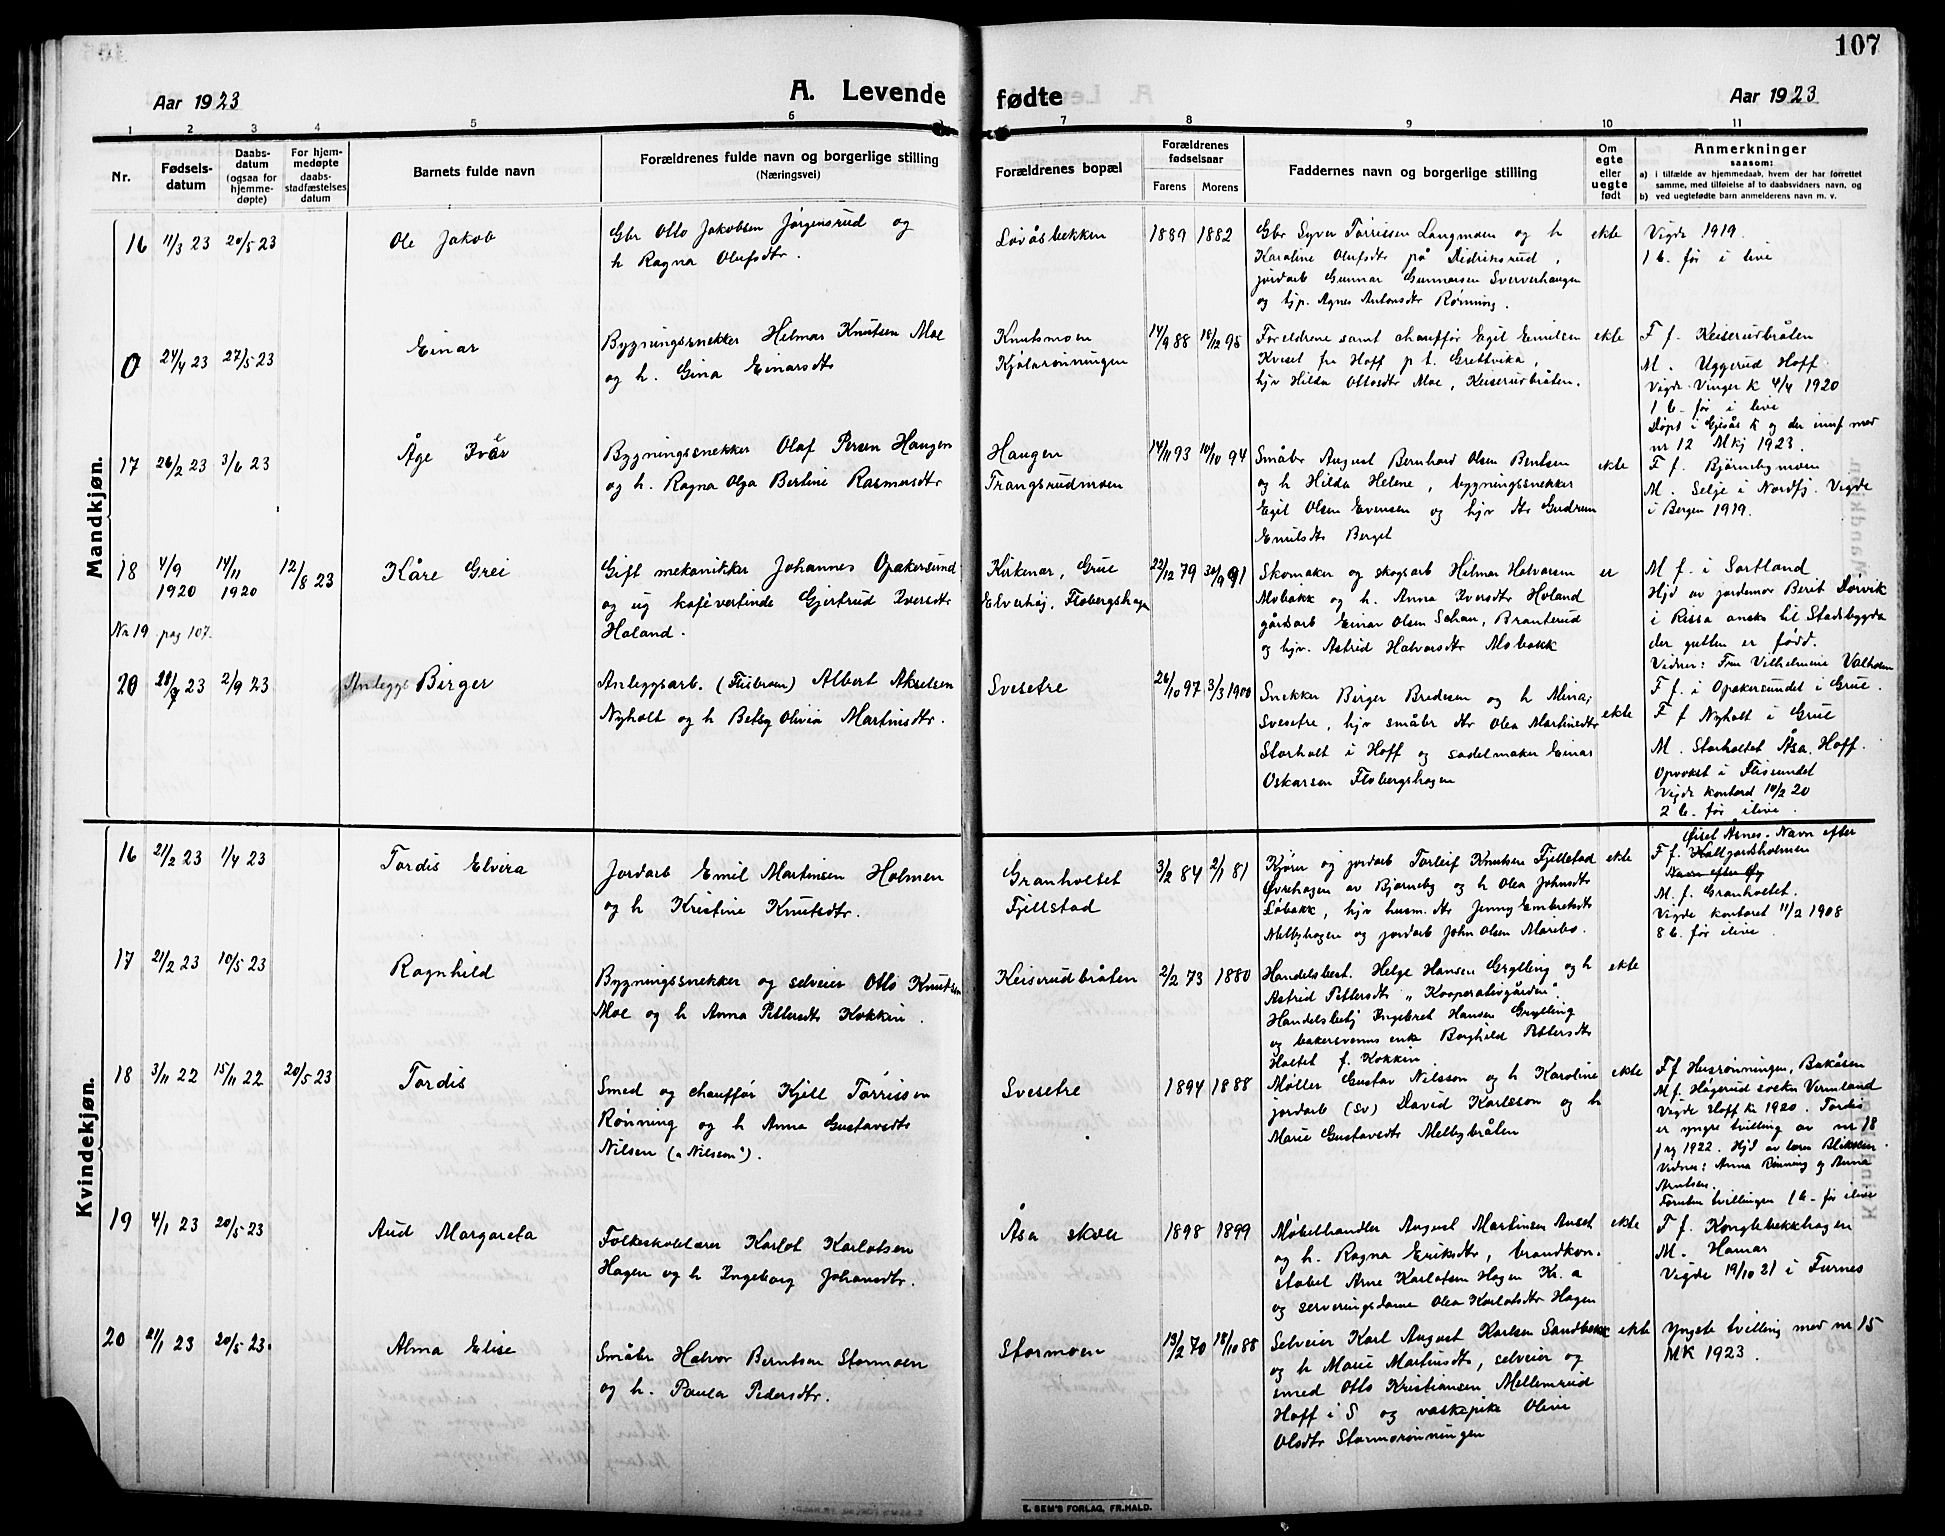 107
Aar 1923
A. Levende
fødte
Aar 1923
1 2 3 4 5 6 7 8 9 10 11
Nr.
Fødsels-
datum
Daabs-
datum
(ogsaa for
hjemme-
døpte)
For hjem-
medøpte
daabs-
stadfæstelses
datum
Barnets fulde navn
Forældrenes fulde navn og borgerlige stilling
(Næringsvei)
Forældrenes bopæl
Forældrenes
fødselsaar
Farens
Morens
Faddernes navn og borgerlige stilling
Om
egte
eller
uegte
født
Anmerkninger
saasom:
a) i tilfælde av hjemmedaab, hvem der har forrettet
samme, med tilføielse af to daabsvidners navn, og
b) ved uegtefødte barn anmelderens navn m. v.
Mandkjøn.
16
11/3 23
20/5 23
Ole Jakob
Gbr Otto Jakobsen Jørgensrud og
h Ragna Olufsdtr.
Lövåsbekken
1889
1882
Gbr Syver Törrissen Langmoen og h
Karoline Olufsdtr på Didriksrud,
jordarb Gunnar Gunnarsen Sververhaugen
og hjp. Agnes Antonsdtr Rønning.
ekte
Vigde 1919.
1 b. før i live
0
24/4 23
27/5 23
Einar
Bygningssnekker Hilmar Knutsen Moe
og h. Gina Einarsdtr
Knutsmoen
Kjölarønningen
14/9 88
18/12 98
Foreldrene samt chauffør Egil Emilsen
Kveset fra Hoff p t. Grettvika,
hjv Hilda Ottosdtr Moe, Keiserudbråten.
ekte
F f. Keiserudbråten
M. Uggerud Hoff.
Vigde Vinger k 4/4 1920
1 b. før i live
Døpt i Gjesås k og der innf med
nr 12 Mkj 1923.
17
26/2 23
3/6 23
Åge Ivar
Bygningssnekker Olaf Persen Haugen
og h. Ragna Olga Bertine Rasmusdtr
Haugen
Trangsrudmoen
14/11 93
10/10 94
Småbr August Bernhard Olsen Bentsen
og h Hilda Helene, bygningssnekker
Egil Olsen Evensen og hjv dtr Gudrun
Emilsdtr Berget
ekte
F f. Bjørnebymoen
M. Selje i Nordfj. Vigde
i Bergen 1919.
18
4/9
1920
14/11
1920
12/8 23
Kåre Grei
Gift mekanikker Johannes Opakersund
og ug kafévertinde Gjertrud Iversdtr
Holand.
Kirkenær, Grue
Elverhøj, Flobergshagen
22/12 79
30/9 91
Skomaker og skogsarb Hilmar Halvorsen
Mobakk og h. Anna Iversdtr Holand
gårdarb Einar Olsen Sohan, Branterud
og hjv. Astrid Halvorsdtr Mobakk
er
M f. i Sortland
Hjd av jordemor Berit Dørvik
i Rissa ansks til Stadsbygda
der gutten er född.
Vidner: Fru Vilhelmine Valholm
F f. i Opakersundet i Grue.
Nr 19 pag 107.
20
28/7 23
2/9 23
Anleggs Birger
Anleggsarb. (Flisbroen) Albert Akselsen
Nyholt og h Betsy Olivia Martinsdtr.
Svesetre
26/10 97
3/3 1900
Snekker Birger Bredesen og h Mina,
Svesetre, hjv småbr dtr Olea Martinsdtr
Storholt i Hoff og sadelmaker Einar
Oskarsen Flobergshagen
ekte
F f Nyholt i Grue
M. Storholtet Åsa, Hoff.
Opvokst i Flissundet
Vigde kontord 10/2 20
2 b. før i live.
Kvindekjøn.
16
21/2 23
1/4 23
Tordis Elvira
Jordarb Emil Martinsen Holmen
og h Kristine Knutsdtr.
Granholtet
Fjellstad
3/2 84
2/1 81
Kjører og jordarb Torleif Knutsen Fjellstad
Øvrehagen av Bjørneby og h Olea Johnsdtr
Løbakk, hjv husm. dtr Jenny Embretsdtr
Melbyhagen og jordarb John Olsen Marebo.
ekte
Øiset Åsnes. Navn efter
F f. Kallgardsholmen
Navn efter Øy
M. f. Granholtet.
Vigde kontoret 11/2 1908
8 b. før i live.
17
21/2 23
10/5 23
Ragnhild
Bygningssnekker og selveier Otto Knutsen
Moe og h Anna Pettersdtr Kokkin.
Keiserudbråten
2/2 73
1880
Handelsbest. Helge Hansen Grylling og h
Astrid Pettersdtr "Kooperativgården".
Handelsbetj Ingebret Hansen Grylling
og bakersvenns enke Borghild Pettersdtr
Holtet f. Kokkin
ekte
18
3/11 22
15/11 22
20/5 23
Tordis
Smed og chauffør Kjell Törrissen
Rønning og h Anna Gustavsdtr
Nilsen ("Nilsson").
Svesetre
1894
1888
Møller Gustav Nilsson og h Karoline
jordarb (sv) David Karlsson og h
Marie Gustavsdtr Melbybråten
ekte
F f Heisrønningen, Bakåsen
M f. Högerud sockn Vermland
Vigde Hoff k. 1920. Tordis
er yngre tvilling av nr 18
f og 1922. Hjd av læge Bliksten
Vidner: Anna Rønning og Anna
Arntsen.
Foruten tvillingen 1 b. før i live
19
4/1 23
20/5 23
Aud Margareta
Folkeskolelærer Karlot Karlotsen
Hagen og h Ingeborg Johansdtr.
Åsa skole
1898
1899
Møbelhandler August Martinsen Anset
og h. Ragna Eriksdtr, brandkon-
stabel Arne Karlotsen Hagen Kr. a
og serveringsdame Olea Karlotsdtr Hagen
ekte
F f. Konglebekkhagen
M. Hamar
Vigde 19/10 21 i Furnes
20
21/1 23
20/5 23.
Alma Elise
Småbr Halvor Berntsen Stormoen
og h. Paula Pedersdtr.
Stormoen
13/2 70
18/10 88
Selveier Karl August Karlsen Sandbakk
og h Marie Martinsdtr, selveier og
smed Otto Kristiansen Mellemrud
Hoff i S og vaskepike Olive
Olsdtr Stormorønningen
ekte
Yngste tvilling med nr 15
MK 1923.
E. SEM'S FORLAG, FR.HALD.